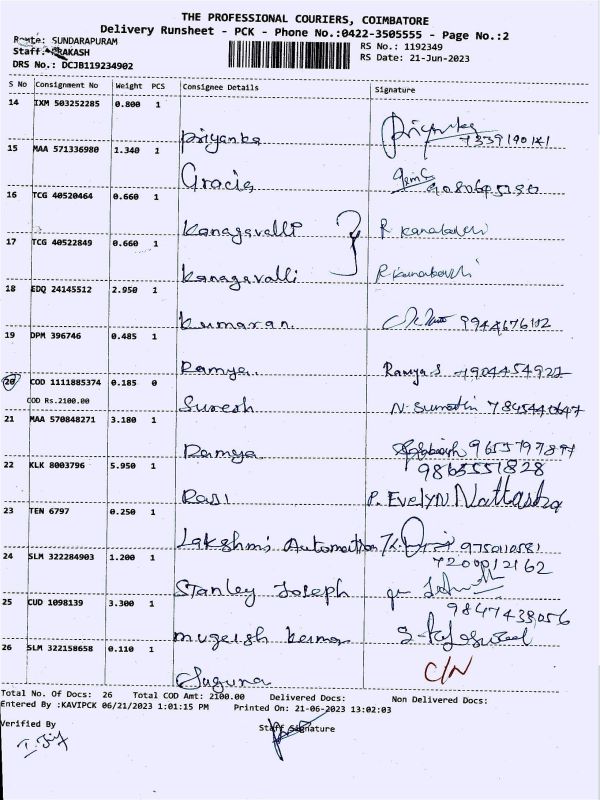 THE PROFESSIONAL COURIERS, COIMBATORE
Delivery Runsheet - PCK - Phone No.:0422-3505555 - Page No.:2
Route: SUNDARAPURAM
RS No.: 1192349
Staff: PRAKASH
RS Date: 21-Jun-2023
DRS No.: DCJB119234902
S No Consignment No Weight PCS Consignee Details Signature
14 IXM 503252285 0.800 1
Priyanka Priyanka 7339190141
15 MAA 571336980 1.340 1
Gracia
16 TCG 40520464 0.660 1
Kanagavalli R
17 TCG 40522849 0.660 1
Kanagavalli R
18 EDQ 24145512 2.950 1
Kumaran 9944676112
19 DPM 396746 0.485 1
Ramya. Ramya S
20 COD 1111885374 0.185 0
COD Rs.2100.00
Suresh N. Sumathi 7845440647
21 MAA 570848271 3.180 1
Ramya
22 KLK 8003796 5.950 1 9865551828
Rasi P. Evelyn Nattasha
23 TEN 6797 0.250 1
Lakshmi Automation
24 SLM 322284903 1.200 1 7200012162
Stanley Joseph
25 CUD 1098139 3.300 1 9847438056
mugesh kumar
26 SLM 322158658 0.110 1
Suguna C/N
Total No. Of Docs: 26 Total COD Amt: 2100.00 Delivered Docs: Non Delivered Docs:
Entered By :KAVIPCK 06/21/2023 1:01:15 PM Printed On: 21-06-2023 13:02:03
Verified By
Staff Signature